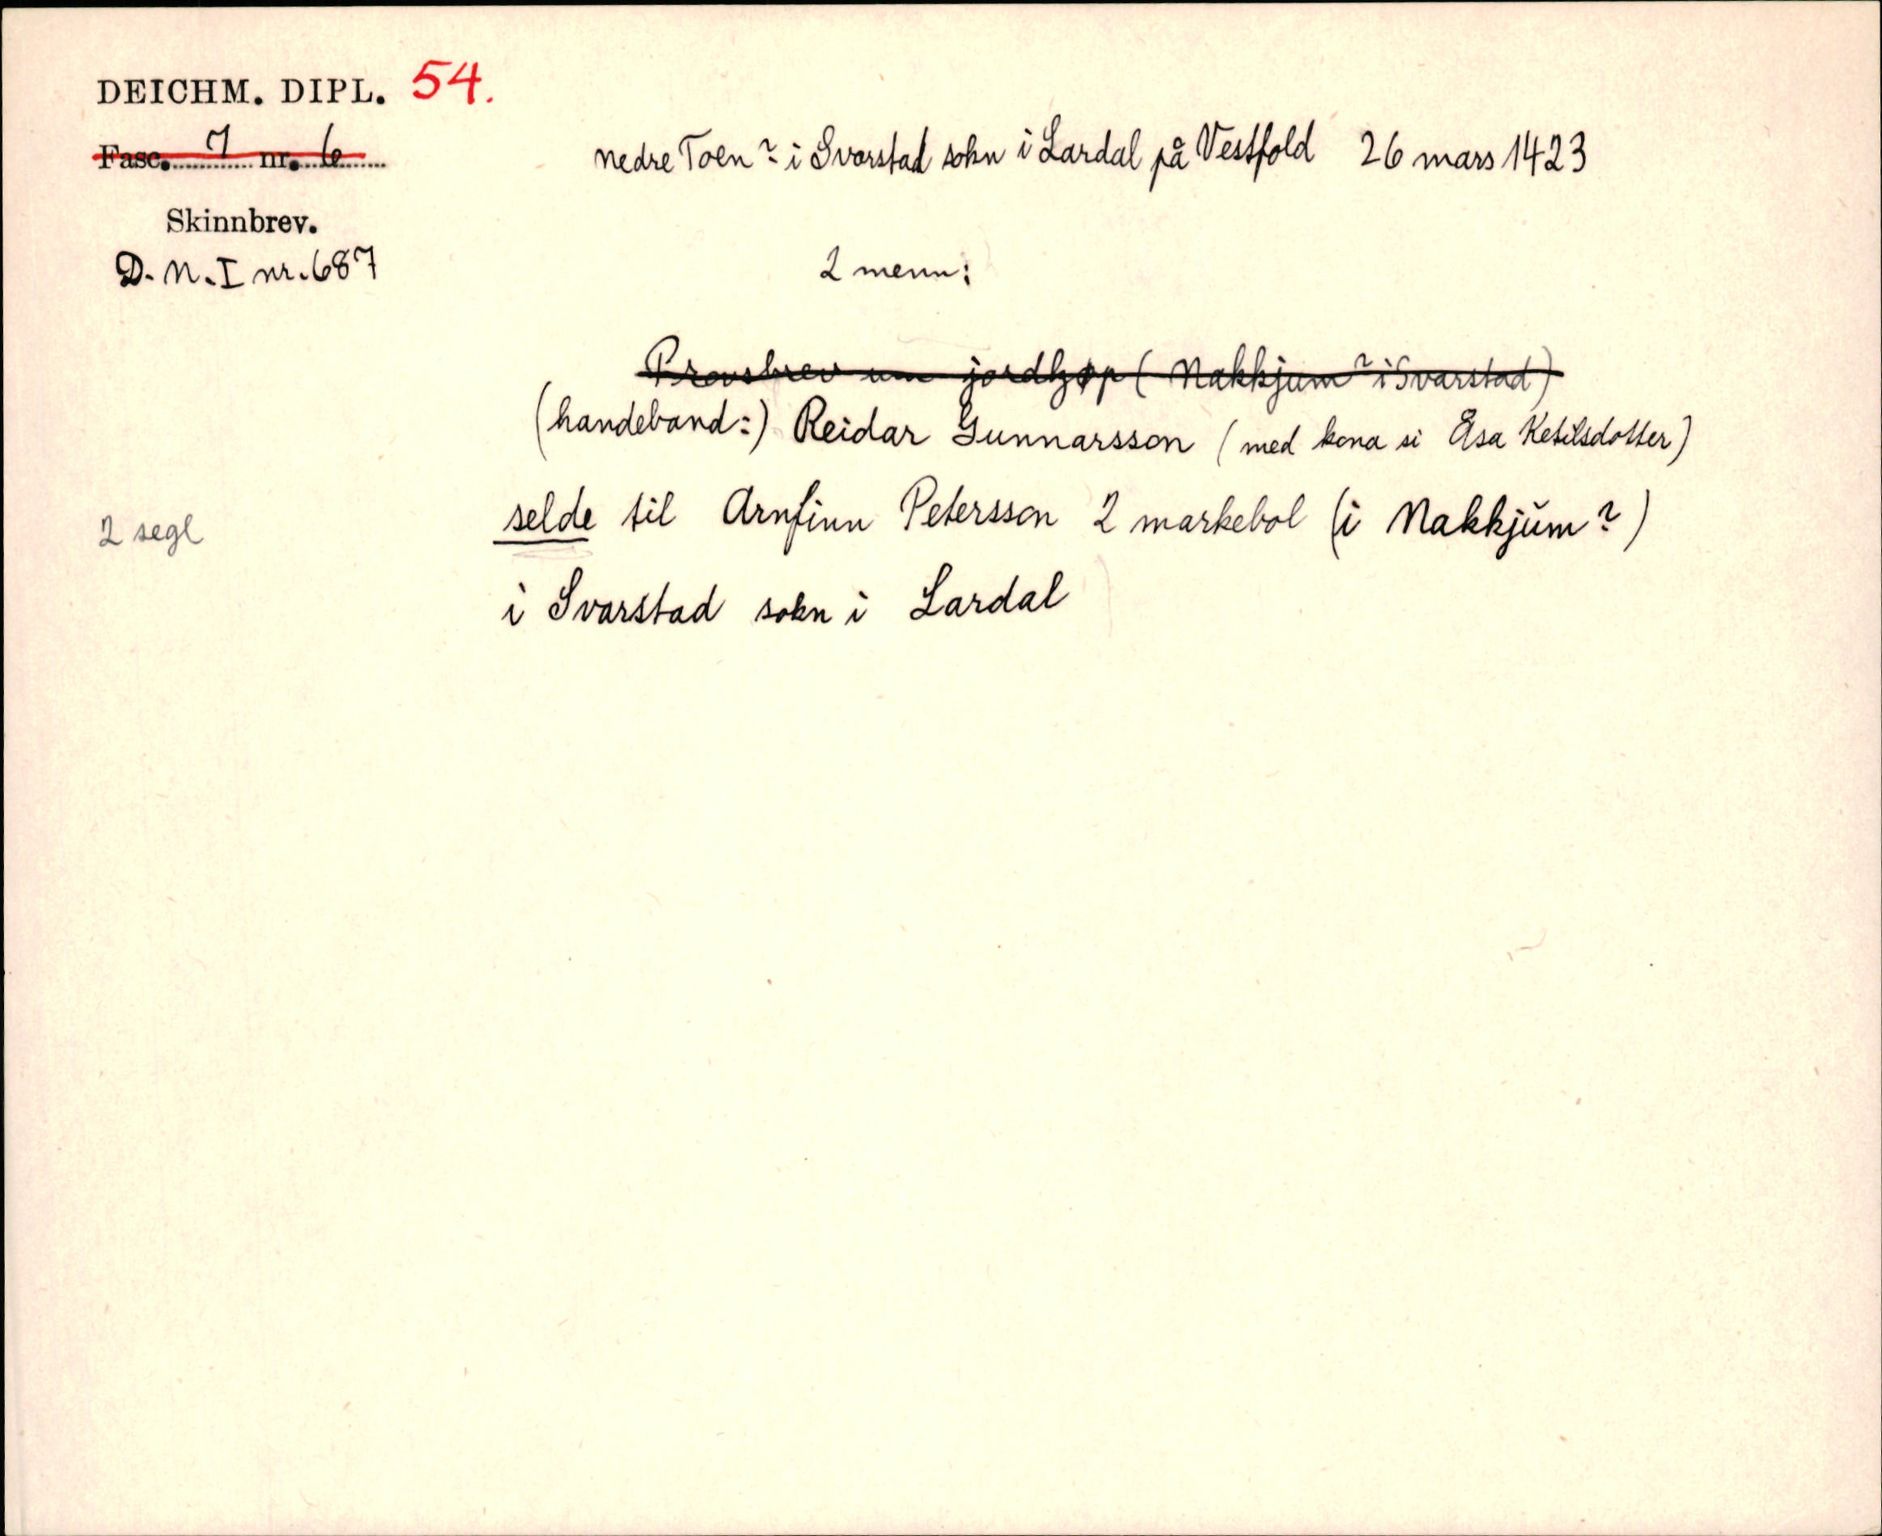 DEICHM. DIPL. 54.
Fasc. 7 nr. 6
Skinnbrev.
D. N. I nr. 687
nedre Toen? i Svarstad sokn i Lardal på Vestfold 26 mars 1423
2 menn:
Provsbrev um jordkjøp ( Nakkjum? i Svarstad)
(handeband:) Reidar Gunnarsson (med kona si Åsa Ketilsdotter)
selde til Arnfinn Petersson 2 markebol (i Nakkjŭm?)
i Svarstad sokn i Lardal
2 segl